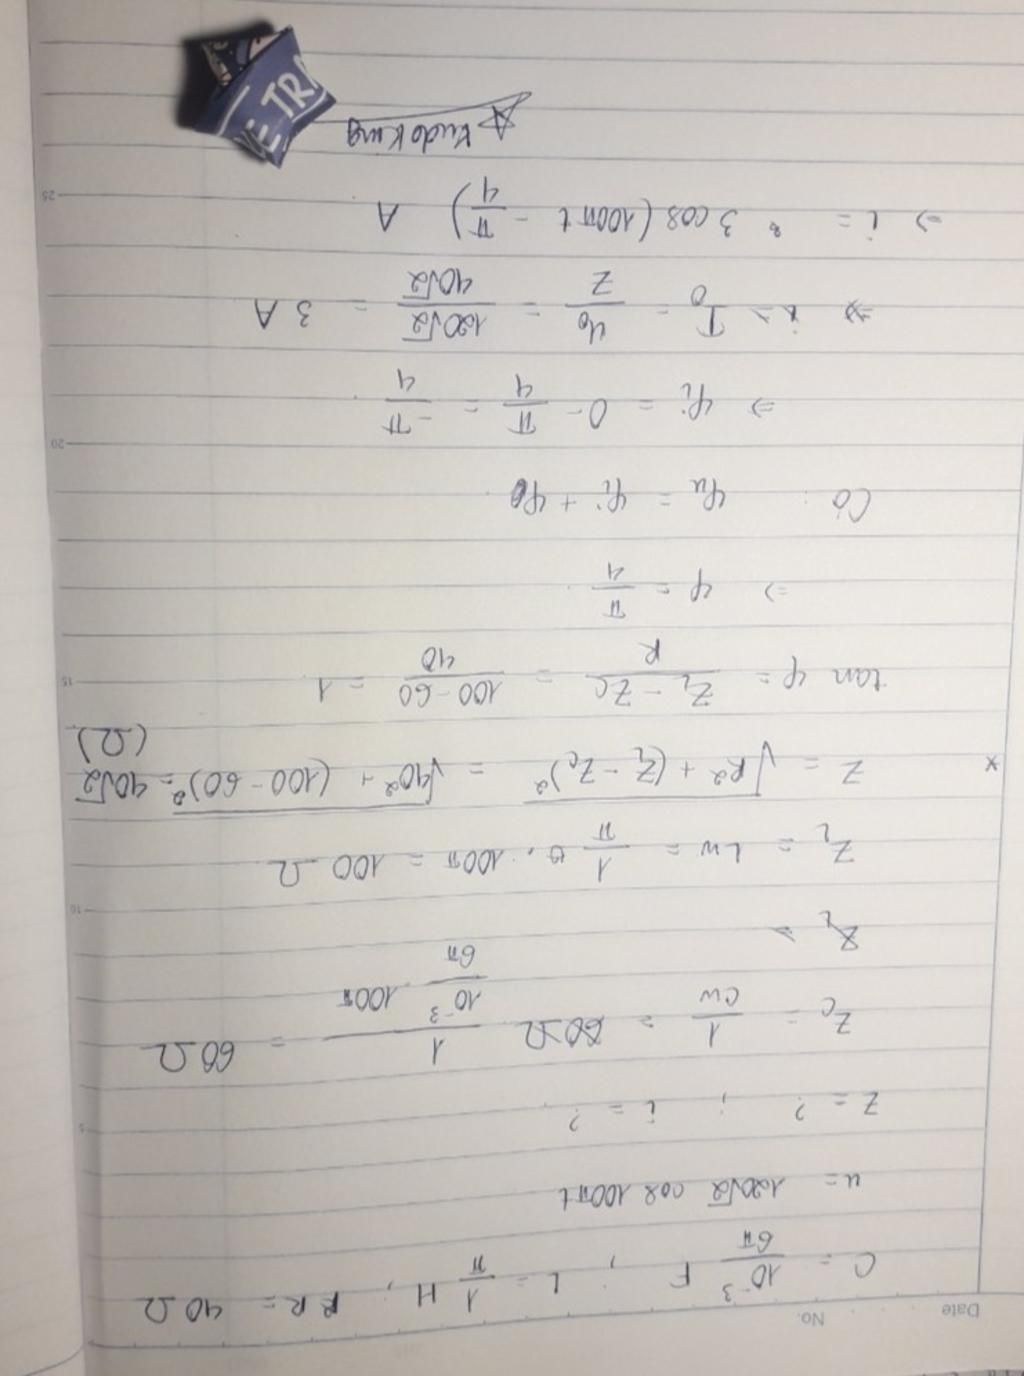 Date No.
C = 10⁻³/6π F ; L = 1/π H ; R = 40 Ω
u = 120√2 cos 100πt
Z = ? ; i = ?
Z_C = 1/Cω = 60Ω 1/(10⁻³/6π · 100π) = 60 Ω
Z_L =
Z_L = Lω = 1/π · 100π = 100 Ω
* Z = √(R² + (Z_L - Z_C)²) = √(40² + (100 - 60)²) = 40√2 (Ω)
tan φ = (Z_L - Z_C)/R = (100 - 60)/40 = 1
⇒ φ = π/4
Có : φ_u = φ_i + φ
⇒ φ_i = 0 - π/4 = -π/4
⇒ I₀ = U₀/Z = 120√2/40√2 = 3 A
⇒ i = 3 cos (100πt - π/4) A
Kudo King
TR
5
10
15
20
25